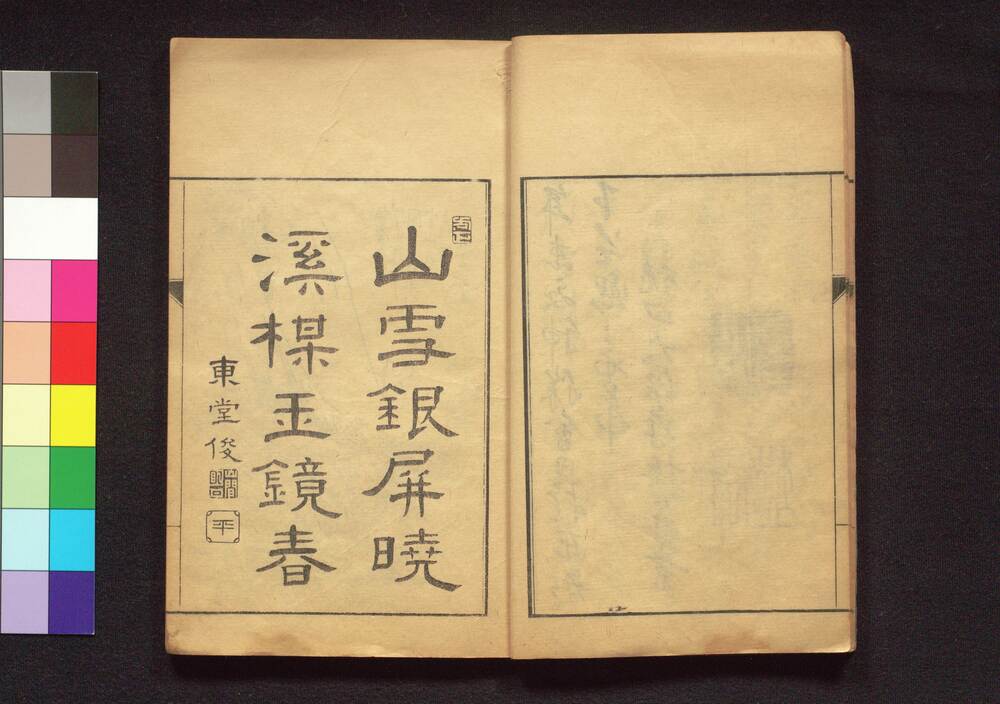 山雪銀屏曉
溪楳玉鏡春
東堂俊
平